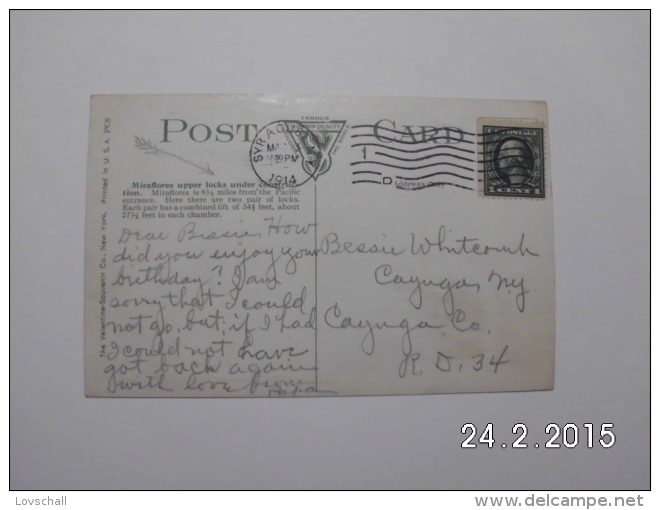 POST CARD
FAMOUS
SYRACUSE
MA
PM
1914
1
D
Address Only
POSTAGE
1 CENT 1
Miraflores upper locks under construc-
tion. Miraflores is 6½ miles from the Pacific
entrance. Here there are two pair of locks.
Each pair has a combined lift of 54⅔ feet, about
27⅓ feet in each chamber.
The Valentine-Souvenir Co., New York. Printed in U. S. A.
Dear Bessie, How
did you enjoy your
birthday? I am
sorry that I could
not go. but, if I had
I could not have
got back again
with love from
papa
Bessie Whitcomb
Cayuga, Ny
Cayuga Co.
R. D. 34
24.2.2015
Lovschall
delcampe.net